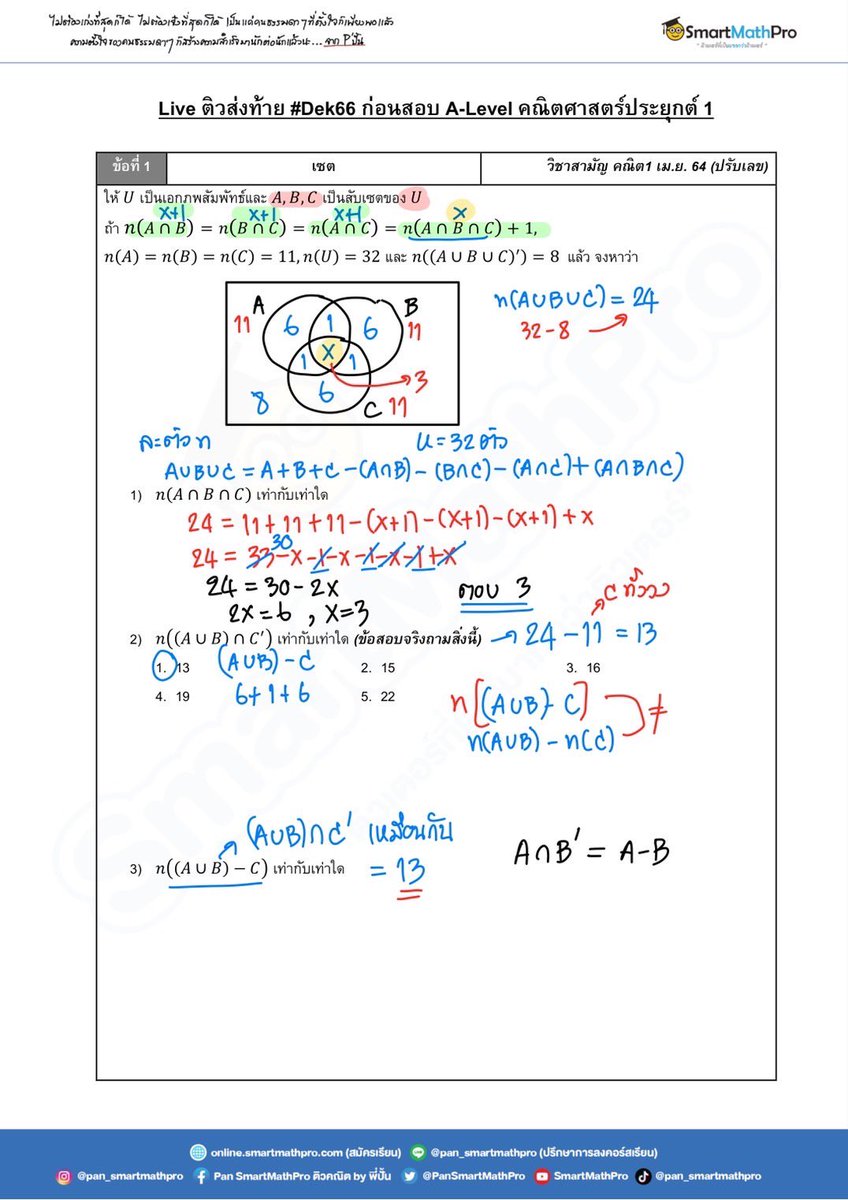 ไม่ต้องเก่งที่สุดก็ได้ ไม่ต้องเจ๋งที่สุดก็ได้ เป็นแค่คนธรรมดา ๆ ที่ตั้งใจก็เพียงพอแล้ว
ความตั้งใจของคนธรรมดาๆ ก็สร้างความสำเร็จมานักต่อนักแล้วนะ... จาก P'ปั้น
SmartMathPro
Live ติวส่งท้าย #Dek66 ก่อนสอบ A-Level คณิตศาสตร์ประยุกต์ 1
ข้อที่ 1 เซต วิชาสามัญ คณิต1 เม.ย. 64 (ปรับเลข)
ให้ U เป็นเอกภพสัมพัทธ์และ A, B, C เป็นสับเซตของ U
x+1 x+1 x+1 x
ถ้า n(A ∩ B) = n(B ∩ C) = n(A ∩ C) = n(A ∩ B ∩ C) + 1,
n(A) = n(B) = n(C) = 11, n(U) = 32 และ n((A ∪ B ∪ C)′) = 8 แล้ว จงหาว่า
A B
11 6 1 6 11
1 x 1
3
6
8 C 11
n(A∪B∪C) = 24
32-8
ละตัว n U = 32 ตัว
A∪B∪C = A+B+C -(A∩B) - (B∩C) - (A∩C) + (A∩B∩C)
1) n(A ∩ B ∩ C) เท่ากับเท่าใด
24 = 11 + 11 + 11 - (x+1) - (x+1) - (x+1) + x
30
24 = 33 - x - 1 - x - 1 - x - 1 + x
24 = 30 - 2x
2x = 6 , x = 3
ตอบ 3
C ทั้งวง
2) n((A ∪ B) ∩ C′) เท่ากับเท่าใด (ข้อสอบจริงถามสิ่งนี้) 24 - 11 = 13
1. 13 (A∪B) - C 2. 15 3. 16
4. 19 6+1+6 5. 22
n[(A∪B) - C]
≠
n(A∪B) - n(C)
(A∪B)∩C' เหมือนกัน
3) n((A ∪ B) − C) เท่ากับเท่าใด = 13
A∩B' = A-B
online.smartmathpro.com (สมัครเรียน) @pan_smartmathpro (ปรึกษาการลงคอร์สเรียน)
@pan_smartmathpro Pan SmartMathPro ติวคณิต by พี่ปั้น @PanSmartMathPro SmartMathPro @pan_smartmathpro